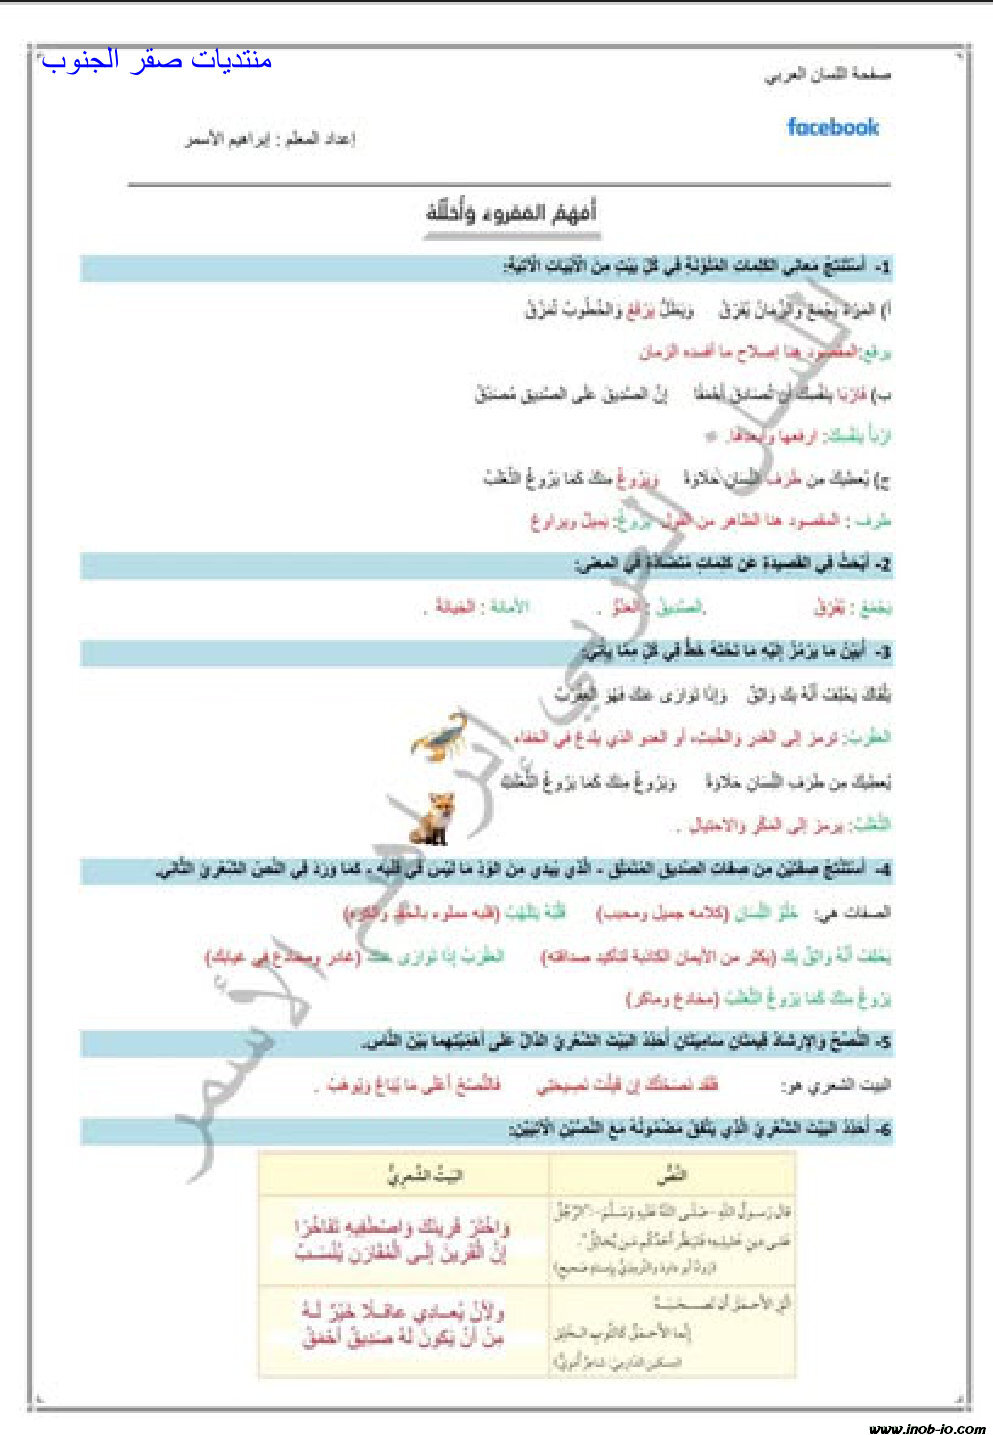 منتديات صقر الجنوب
صفحة اللسان العربي
facebook
إعداد المعلم : إبراهيم الأسمر
أفهم المقروء وأحلله
1- أستنتج معاني الكلمات الملونة في كل بيت من الأبيات الآتية:
أ) المرء يجمع والزمان يفرق ويظل يرقع والخطوب تمزق
يرقع:المقصود هنا إصلاح ما أفسده الزمان
ب) فاربأ بنفسك أن تصادق أحمقا إن الصديق على الصديق مصدق
اربأ بنفسك: ارفعها وأبعدها.
ج) يعطيك من طرف اللسان حلاوة ويروغ منك كما يروغ الثعلب
طرف : المقصود هنا الظاهر من القول يروغ: يميل ويراوغ
2- أبحث في القصيدة عن كلمات متضادة في المعنى:
يجمع : يفرق .الصديق : العدو . الأمانة : الخيانة .
3- أبين ما يرمز إليه ما تحته خط في كل مما يأتي:
يلقاك يحلف أنه بك واثق وإذا توارى عنك فهو العقرب
العقرب: ترمز إلى الغدر والخبث، أو العدو الذي يلدغ في الخفاء
يعطيك من طرف اللسان حلاوة ويروغ منك كما يروغ الثعلب
الثعلب: يرمز إلى المكر والاحتيال .
4- أستنتج صفتين من صفات الصديق المتملق - الذي يبدي من الود ما ليس في قلبه - كما ورد في النص الشعري الثاني.
الصفات هي: حلو اللسان (كلامه جميل ومحبب) قلبه يتلهب (قلبه مملوء بالحقد والكره)
يحلف أنه واثق بك (يكثر من الأيمان الكاذبة لتأكيد صداقته) العقرب إذا توارى عنك (غادر ومخادع في غيابك)
يروغ منك كما يروغ الثعلب (مخادع وماكر)
5- النصح والإرشاد قيمتان ساميتان أحدد البيت الشعري الدال على أهميتهما بين الناس.
البيت الشعري هو: فلقد نصحتك إن قبلت نصيحتي فالنصح أغلى ما يباع ويوهب .
6- أحدد البيت الشعري الذي يتفق مضمونه مع النصين الآتيين:
النص البيت الشعري
قال رسول الله -صلى الله عليه وسلم-:"الرجل
على دين خليله فلينظر أحدكم من يخالل".
واختر قرينك واصطفيه تفاخرا
إن القرين إلى المقارن ينسب
اتق الأحمق أن تصحبه
إنما الأحمق كالثوب الخلق
ولأن يعادي عاقلا خير له
من أن يكون له صديق أحمق
اللسان العربي إبراهيم الأسمر
www.jnob-jo.com